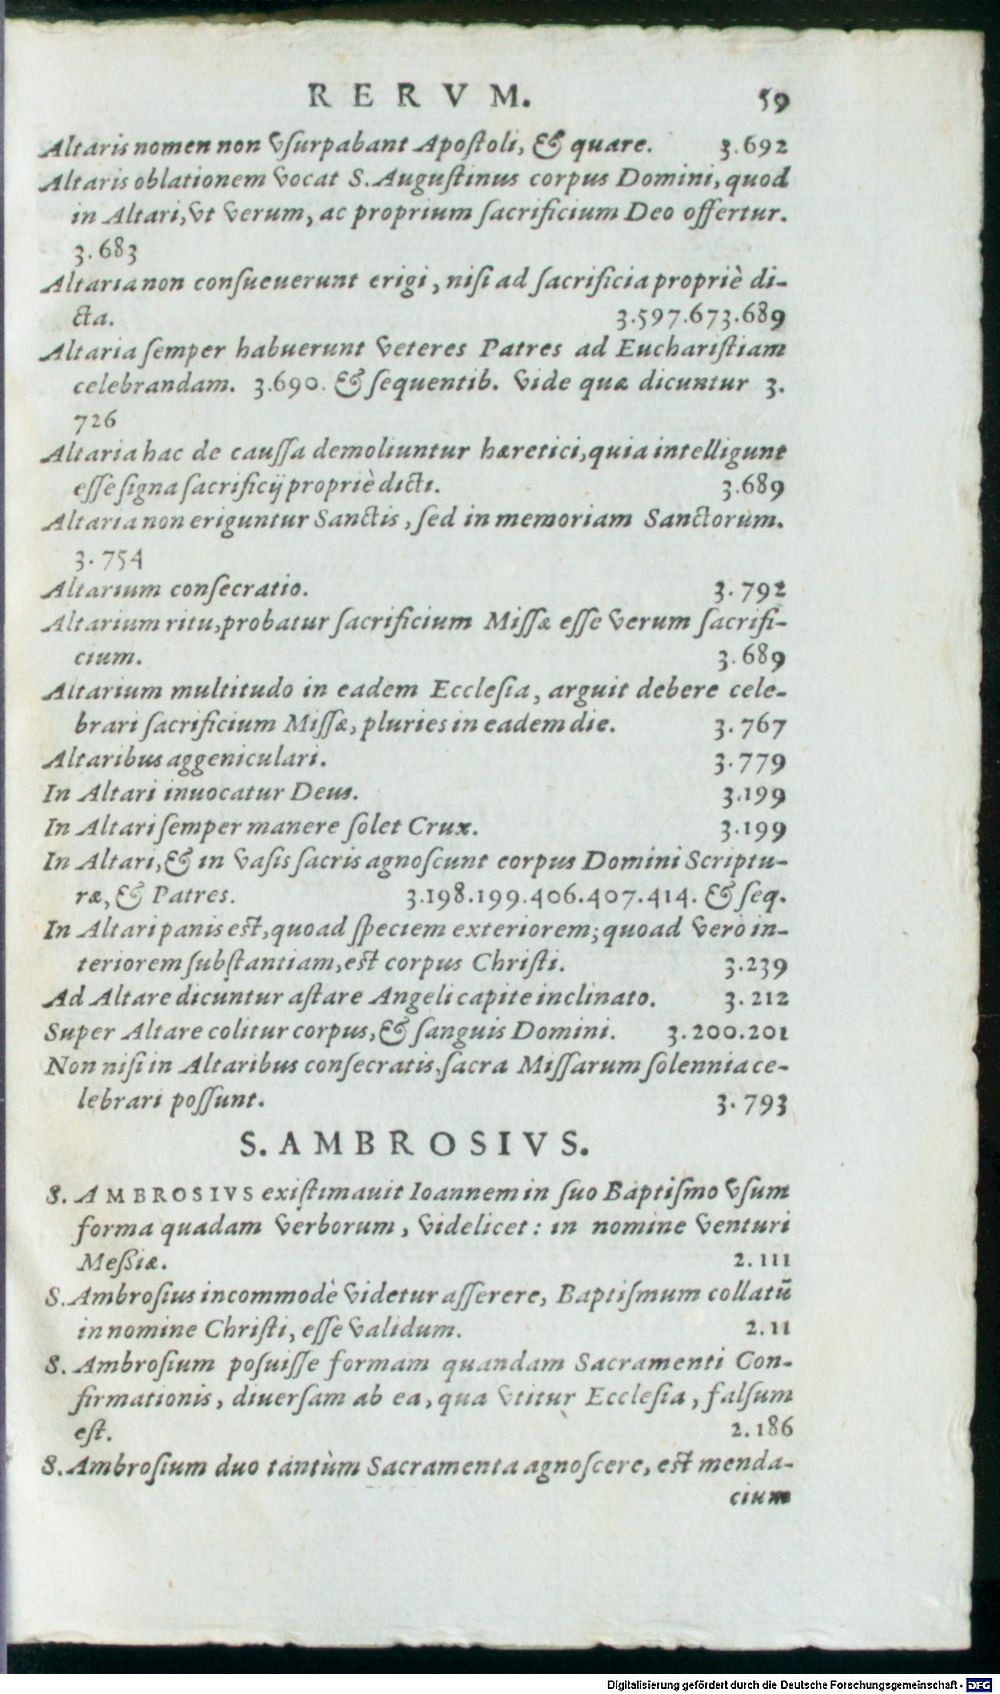 RERVM. 59
Altaris nomen non vsurpabant Apostoli, & quare. 3.692
Altaris oblationem vocat S. Augustinus corpus Domini, quod
in Altari, vt verum, ac proprium sacrificium Deo offertur.
3.683
Altaria non consueuerunt erigi, nisi ad sacrificia propriè di-
cta. 3.597.673.689
Altaria semper habuerunt veteres Patres ad Eucharistiam
celebrandam. 3.690. & sequentib. vide quæ dicuntur 3.
726
Altaria hac de caussa demoliuntur hæretici, quia intelligunt
esse signa sacrificij propriè dicti. 3.689
Altaria non eriguntur Sanctis, sed in memoriam Sanctorum.
3.754
Altarium consecratio. 3.792
Altarium ritu, probatur sacrificium Missæ esse verum sacrifi-
cium. 3.689
Altarium multitudo in eadem Ecclesia, arguit debere cele-
brari sacrificium Missæ, pluries in eadem die. 3.767
Altaribus aggeniculari. 3.779
In Altari inuocatur Deus. 3.199
In Altari semper manere solet Crux. 3.199
In Altari, & in vasis sacris agnoscunt corpus Domini Scriptu-
ræ, & Patres. 3.198.199.406.407.414. & seq.
In Altari panis est, quoad speciem exteriorem; quoad verò in-
teriorem substantiam, est corpus Christi. 3.239
Ad Altare dicuntur astare Angeli capite inclinato. 3.212
Super Altare colitur corpus, & sanguis Domini. 3.200.201
Non nisi in Altaribus consecratis, sacra Missarum solennia ce-
lebrari possunt. 3.793
S. AMBROSIVS.
S. AMBROSIVS existimauit Ioannem in suo Baptismo vsum
forma quadam verborum, videlicet: in nomine venturi
Meßiæ. 2.111
S. Ambrosius incommodè videtur asserere, Baptismum collatū
in nomine Christi, esse validum. 2.11
S. Ambrosium posuisse formam quandam Sacramenti Con-
firmationis, diuersam ab ea, qua vtitur Ecclesia, falsum
est. 2.186
S. Ambrosium duo tantùm Sacramenta agnoscere, est menda-
cium
Digitalisierung gefördert durch die Deutsche Forschungsgemeinschaft - DFG